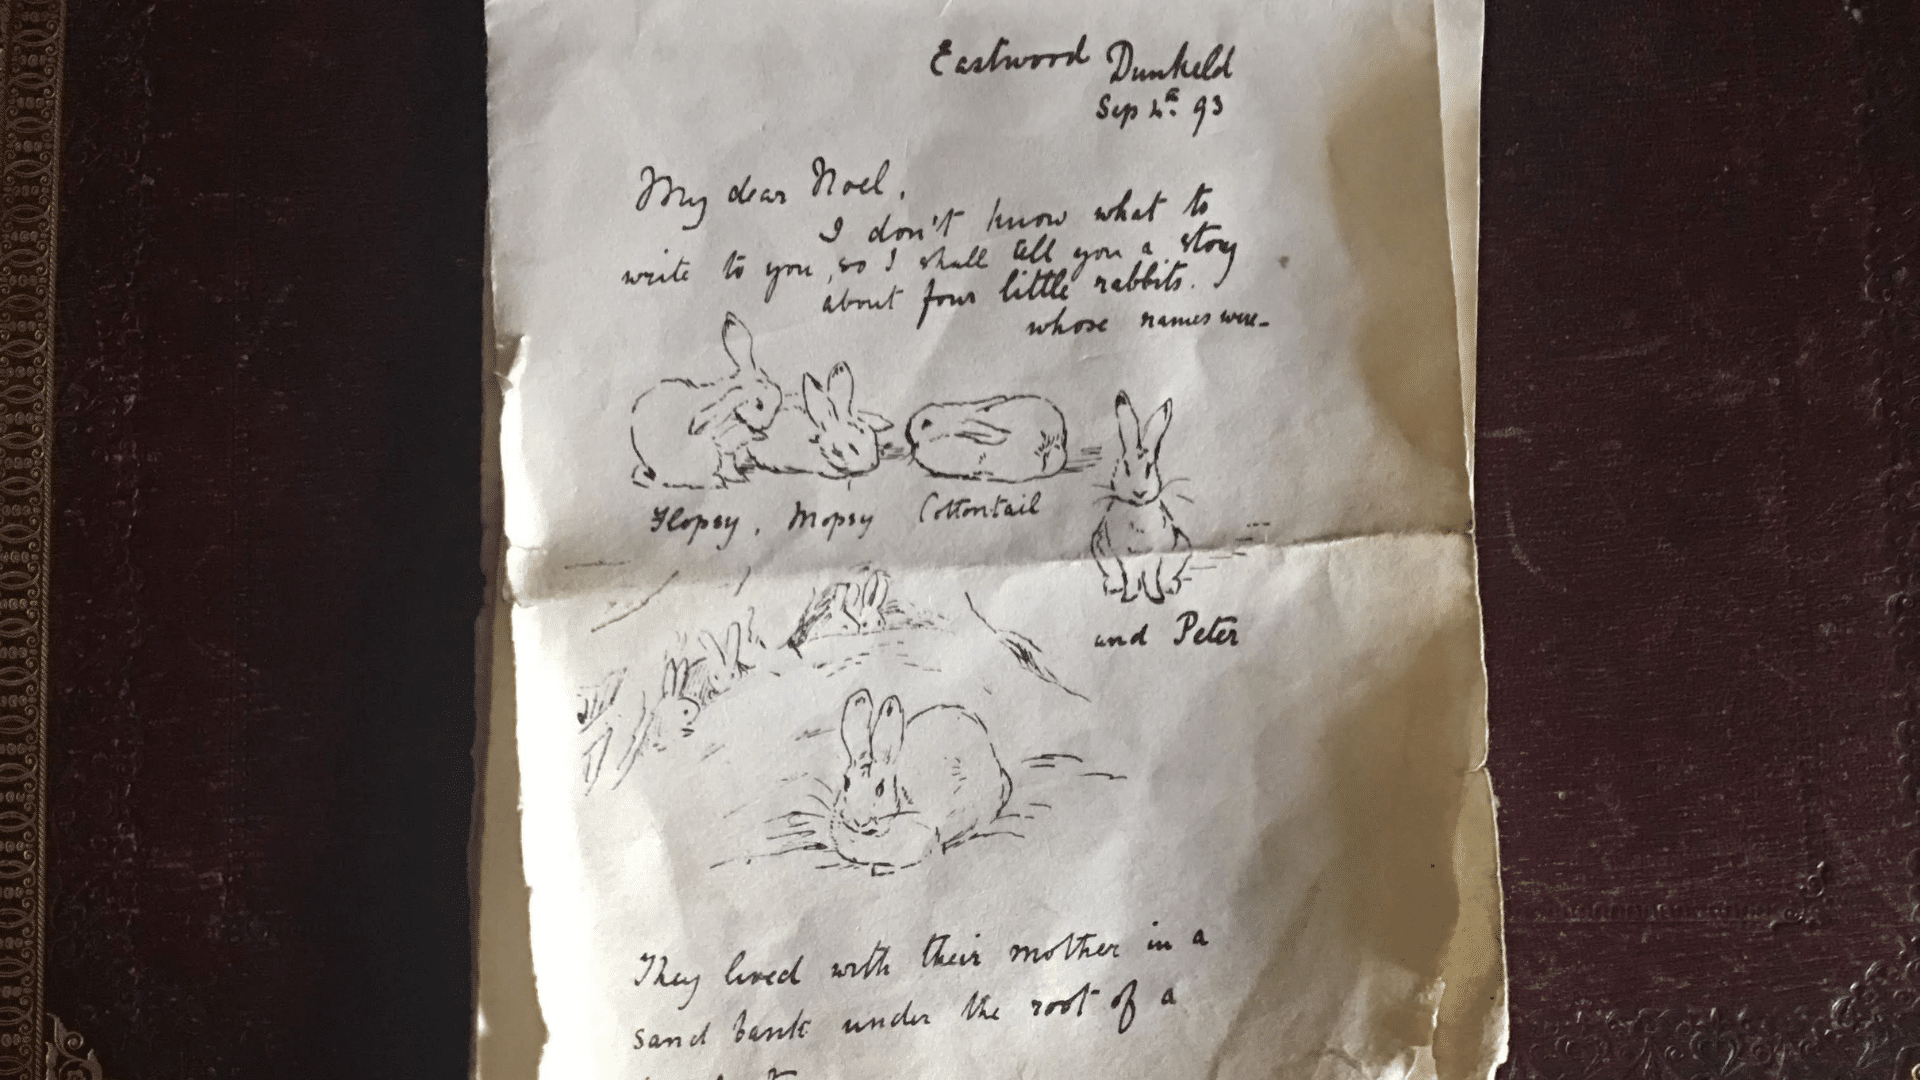 Eastwood Dunkeld
Sep 4th 93
My dear Noel,
I don't know what to
write to you, so I shall tell you a story
about four little rabbits.
whose names were-
Flopsy, Mopsy Cottontail
and Peter
They lived with their mother in a
sand bank under the root of a